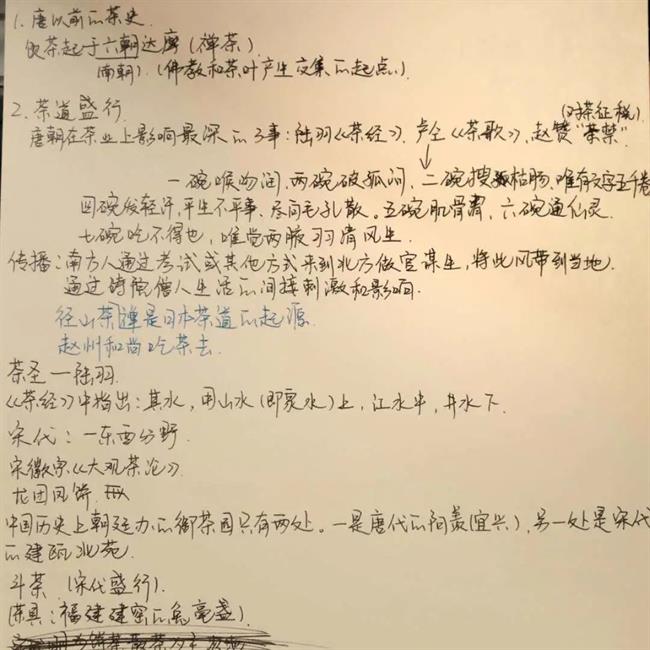 1. 唐以前的茶史.
饮茶起于六朝达摩(禅茶).
(南朝).(佛教和茶叶产生交集的起点.)
2. 茶道盛行.
(对茶征税)
唐朝在茶业上影响最深的3事:陆羽《茶经》、卢仝《茶歌》,赵赞“茶禁”
一碗喉吻润,两碗破孤闷,二碗搜孤枯肠,唯有文字五千卷
四碗发轻汗,平生不平事,尽向毛孔散。五碗肌骨清,六碗通仙灵.
七碗吃不得也,唯觉两腋习习清风生.
传播:南方人通过考试或其他方式来到北方做官谋生,将此风带到当地.
通过诗院僧人生活的间接刺激和影响.
径山茶禅是日本茶道的起源.
赵州和尚吃茶去.
茶圣一陆羽.
《茶经》中指出:其水,用山水(即泉水)上,江水中,井水下.
宋代:一东西分野.
宋徽宗《大观茶论》.
龙团凤饼.
中国历史上朝廷办的御茶园只有两处。一是唐代的阳羡(宜兴),另一处是宋代
的建瓯北苑.
斗茶 (宋代盛行).
(茶具:福建建窑的兔毫盏).